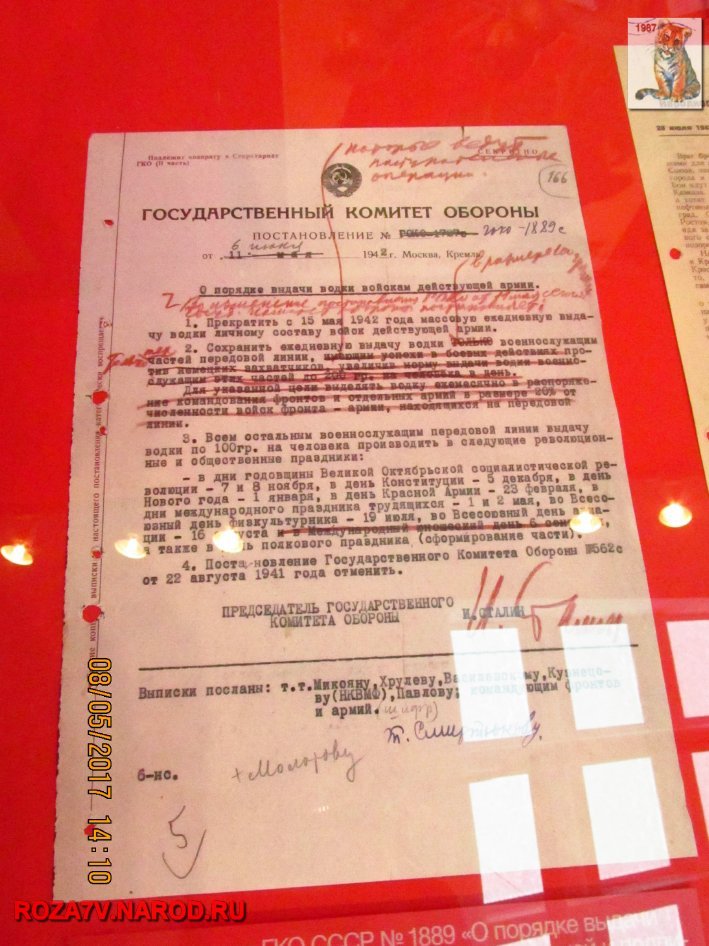 1987
Подлежит возврату в Секретариат
ГКО (II часть)
СЕКРЕТНО
которые ведут
наступательные
операции
166
ГОСУДАРСТВЕННЫЙ КОМИТЕТ ОБОРОНЫ
ПОСТАНОВЛЕНИЕ № ГОКО-1889с
6 июня
от 11 мая 1942г. Москва, Кремль
О порядке выдачи водки войскам действующей армии.
1. Прекратить с 15 мая 1942 года массовую ежедневную выда-
чу водки личному составу войск действующей армии.
2. Сохранить ежедневную выдачу водки только военнослужащим
частей передовой линии, имеющим успехи в боевых действиях про-
тив немецких захватчиков, увеличив норму выдачи водки военно-
служащим этих частей до 200 гр. на человека в день.
Для указанной цели выделять водку ежемесячно в распоряже-
ние командования фронтов и отдельных армий в размере 20% от
численности войск фронта - армии, находящихся на передовой
линии.
3. Всем остальным военнослужащим передовой линии выдачу
водки по 100гр. на человека производить в следующие революцион-
ные и общественные праздники:
- в дни годовщины Великой Октябрьской социалистической ре-
волюции - 7 и 8 ноября, в день Конституции - 5 декабря, в день
Нового года - 1 января, в день Красной Армии - 23 февраля, в
дни международного праздника трудящихся - 1 и 2 мая, во Всесо-
юзный день физкультурника - 19 июля, во Всесоюзный день авиа-
ции - 16 августа и в Международный юношеский день 6 сентября,
а также в день полкового праздника (сформирование части).
4. Постановление Государственного Комитета Обороны №562с
от 22 августа 1941 года отменить.
ПРЕДСЕДАТЕЛЬ ГОСУДАРСТВЕННОГО
КОМИТЕТА ОБОРОНЫ И.СТАЛИН
Выписки посланы: т.т.Микояну,Хрулеву,Василевскому,Кузнецо-
ву(НКВМФ),Павлову; командующим фронтов
и армий. (шифр)
т. Смиртюкову.
6-ис. + Молотову
5
08/05/2017 14:10
ROZATV.NAROD.RU
ГКО СССР № 1889 «О порядке выдачи
28 июля 19